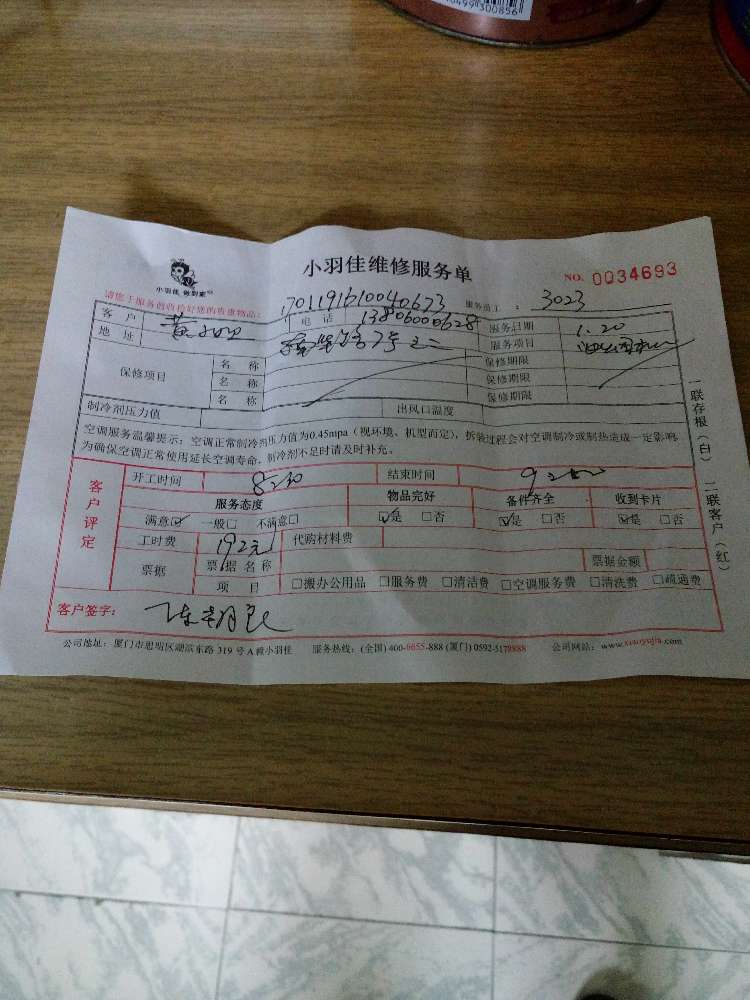 499300856
小羽佳维修服务单
小羽佳 做到家
NO. 0034693
请您于服务前收检好您的贵重物品:
1701191610040673
服务员工: 3023
客户 黄 电话 13806000628 服务日期 1.20
地址 服务项目
保修项目 名称 保修期限
名称 保修期限
名称 保修期限
制冷剂压力值 出风口温度
空调服务温馨提示:空调正常制冷剂压力值为0.45mpa(视环境、机型而定),拆装过程会对空调制冷或制热造成一定影响,
为确保空调正常使用延长空调寿命,制冷剂不足时请及时补充。
客户评定
开工时间 8:30 结束时间 9
服务态度 物品完好 备件齐全 收到卡片
满意☑ 一般□ 不满意□ ☑是 □否 ☑是 □否 ☑是 □否
工时费 192元 代购材料费
票据 票据名称 票据金额
项目 □搬办公用品 □服务费 □清洁费 □空调服务费 □清洗费 □疏通费
客户签字:
公司地址:厦门市思明区湖滨东路 319 号 A 幢小羽佳 服务热线:(全国) 400-6655-888 (厦门) 0592-5178888 公司网站:www.xiaoyujia.com
一联存根(白) 二联客户(红)